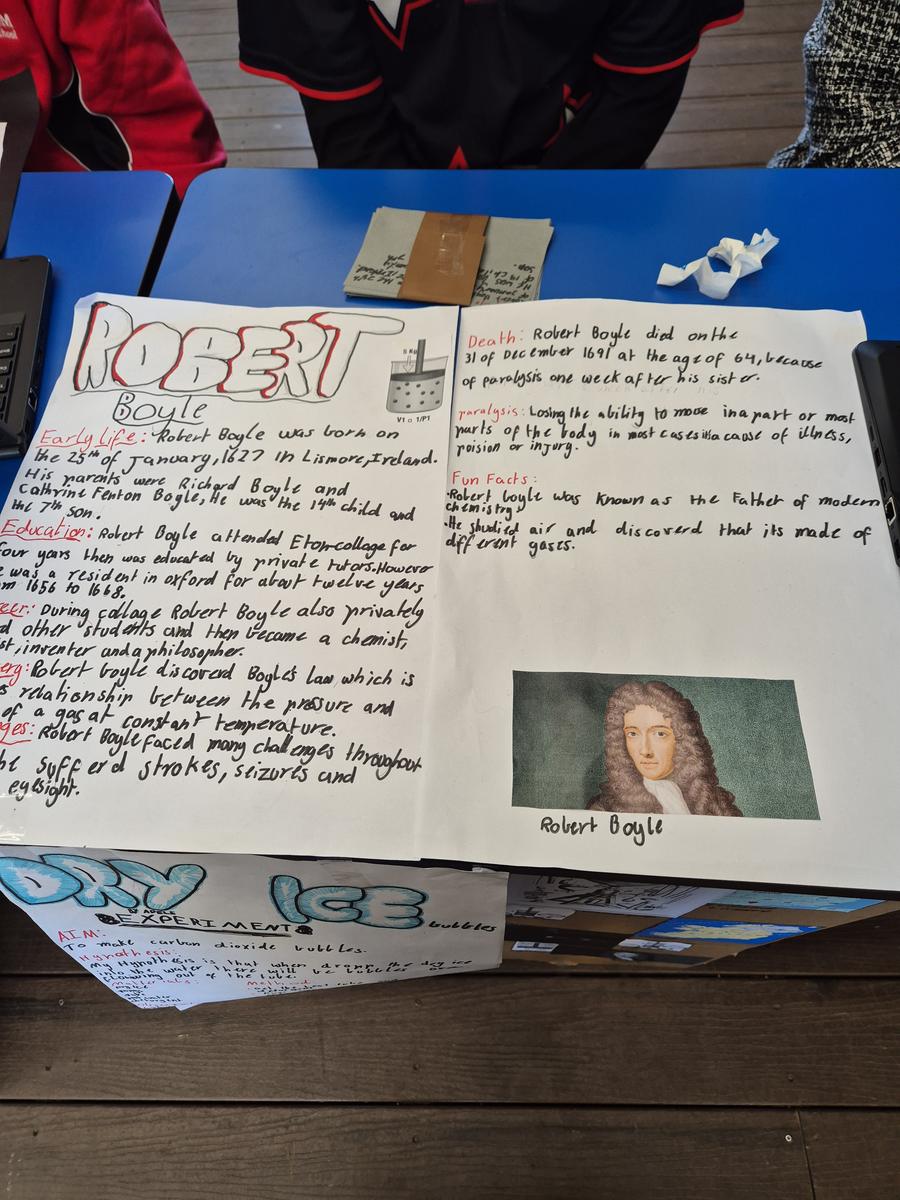 ROBERT
Boyle
5 Kg
V1 α 1/P1
Early life: Robert Boyle was born on
the 25th of January, 1627 in Lismore, Ireland.
His parents were Richard Boyle and
Cathrine Fenton Boyle, He was the 14th child and
the 7th son.
Education: Robert Boyle attended Eton collage for
four years then was educated by private tutors. However
was a resident in oxford for about twelve years
1656 to 1668.
During collage Robert Boyle also privately
other students and then became a chemist,
inventer and a philosopher.
Robert boyle discoverd Boyle's law, which is
relationship between the pressure and
of a gas at constant temperature.
Robert Boyle faced many challenges throughout
he sufferd strokes, seizures and
eyesight.
Death: Robert Boyle died on the
31 of December 1691 at the age of 64, because
of paralysis one week after his sister.
paralysis: Losing the ability to move in a part or most
parts of the body in most cases is a cause of illness,
poision or injury.
Fun Facts:
·Robert boyle was known as the Father of modern
chemistry
·He studied air and discoverd that its made of
different gases.
Robert Boyle
DRY ICE bubbles
BY ADELE
EXPERIMENT
AIM:
To make carbon dioxide bubbles.
Hypothesis:
My Hypothesis is that when dropp the dry ice
into the water there will be bubbles
flowing out of the tube.
Materials:
Method